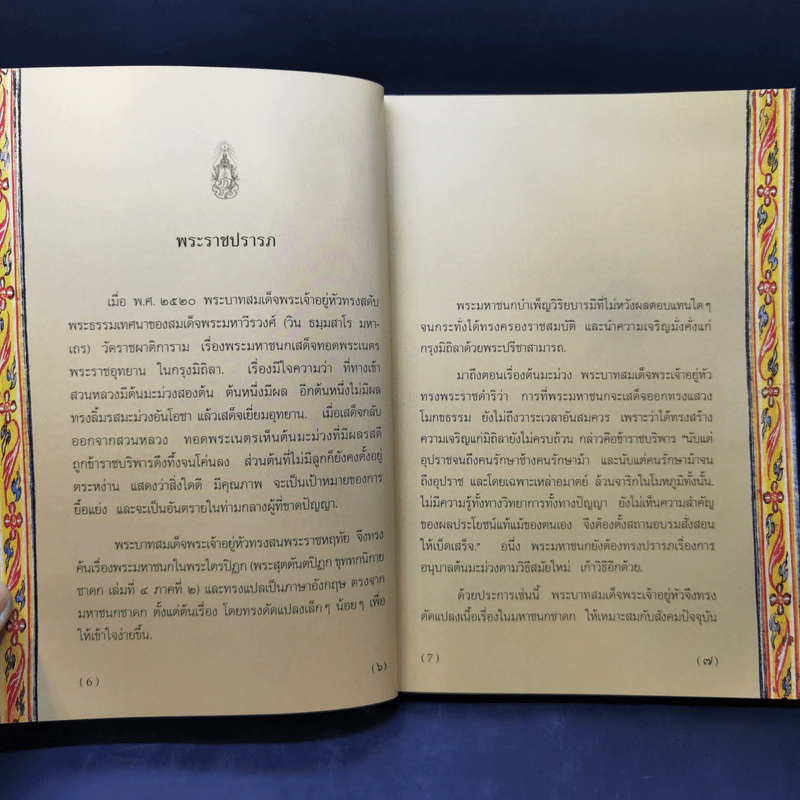 พระราชปรารภ
เมื่อ พ.ศ. ๒๕๒๐ พระบาทสมเด็จพระเจ้าอยู่หัวทรงสดับ
พระธรรมเทศนาของสมเด็จพระมหาวีรวงศ์ (วิน ธมฺมสาโร มหา-
เถร) วัดราชผาติการาม เรื่องพระมหาชนกเสด็จทอดพระเนตร
พระราชอุทยาน ในกรุงมิถิลา. เรื่องมีใจความว่า ที่ทางเข้า
สวนหลวงมีต้นมะม่วงสองต้น ต้นหนึ่งมีผล อีกต้นหนึ่งไม่มีผล
ทรงลิ้มรสมะม่วงอันโอชา แล้วเสด็จเยี่ยมอุทยาน. เมื่อเสด็จกลับ
ออกจากสวนหลวง ทอดพระเนตรเห็นต้นมะม่วงที่มีผลรสดี
ถูกข้าราชบริพารดึงทึ้งจนโค่นลง ส่วนต้นที่ไม่มีลูกก็ยังคงตั้งอยู่
ตระหง่าน แสดงว่าสิ่งใดดี มีคุณภาพ จะเป็นเป้าหมายของการ
ยื้อแย่ง และจะเป็นอันตรายในท่ามกลางผู้ที่ขาดปัญญา.
พระบาทสมเด็จพระเจ้าอยู่หัวทรงสนพระราชหฤทัย จึงทรง
ค้นเรื่องพระมหาชนกในพระไตรปิฎก (พระสุตตันตปิฎก ขุททกนิกาย
ชาดก เล่มที่ ๔ ภาคที่ ๒) และทรงแปลเป็นภาษาอังกฤษ ตรงจาก
มหาชนกชาดก ตั้งแต่ต้นเรื่อง โดยทรงดัดแปลงเล็กๆ น้อยๆ เพื่อ
ให้เข้าใจง่ายขึ้น.
(6)
(๖)
พระมหาชนกบำเพ็ญวิริยบารมีที่ไม่หวังผลตอบแทนใดๆ
จนกระทั่งได้ทรงครองราชสมบัติ และนำความเจริญมั่งคั่งแก่
กรุงมิถิลาด้วยพระปรีชาสามารถ.
มาถึงตอนเรื่องต้นมะม่วง พระบาทสมเด็จพระเจ้าอยู่หัว
ทรงพระราชดำริว่า การที่พระมหาชนกจะเสด็จออกทรงแสวง
โมกขธรรม ยังไม่ถึงวาระเวลาอันสมควร เพราะว่าได้ทรงสร้าง
ความเจริญแก่มิถิลายังไม่ครบถ้วน กล่าวคือข้าราชบริพาร "นับแต่
อุปราชจนถึงคนรักษาช้างคนรักษาม้า และนับแต่คนรักษาม้าจน
ถึงอุปราช และโดยเฉพาะเหล่าอมาตย์ ล้วนจาริกในโมหภูมิทั้งนั้น.
ไม่มีความรู้ทั้งทางวิทยาการทั้งทางปัญญา ยังไม่เห็นความสำคัญ
ของผลประโยชน์แท้แม้ของตนเอง จึงต้องตั้งสถานอบรมสั่งสอน
ให้เบ็ดเสร็จ." อนึ่ง พระมหาชนกยังต้องทรงปรารภเรื่องการ
อนุบาลต้นมะม่วงตามวิธีสมัยใหม่ เก้าวิธีอีกด้วย.
ด้วยประการเช่นนี้ พระบาทสมเด็จพระเจ้าอยู่หัวจึงทรง
ดัดแปลงเนื้อเรื่องในมหาชนกชาดก ให้เหมาะสมกับสังคมปัจจุบัน
(7)
(๗)